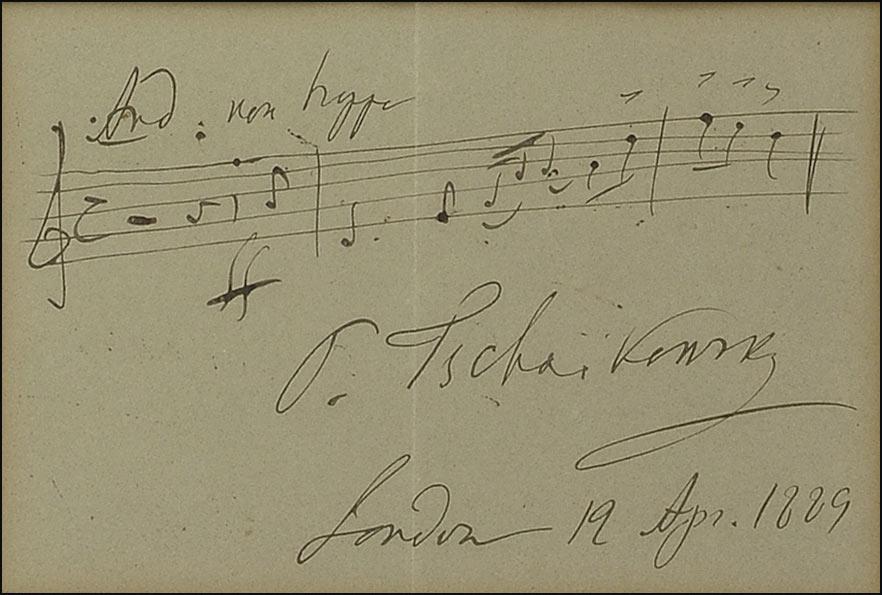 And. non troppo
ff
P. Tschaïkowsky
London 12 Apr. 1889